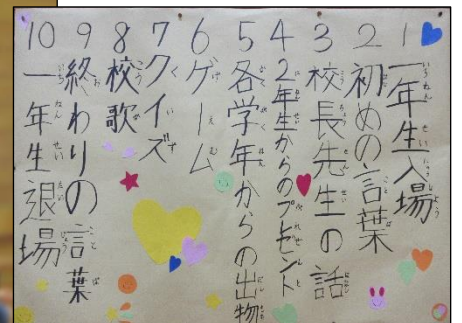 1 一年生入場
2 初めの言葉
3 校長先生の話
4 2年生からのプレゼント
5 各学年からの出物
6 ゲーム
7 クイズ
8 校歌
9 終わりの言葉
10 一年生退場